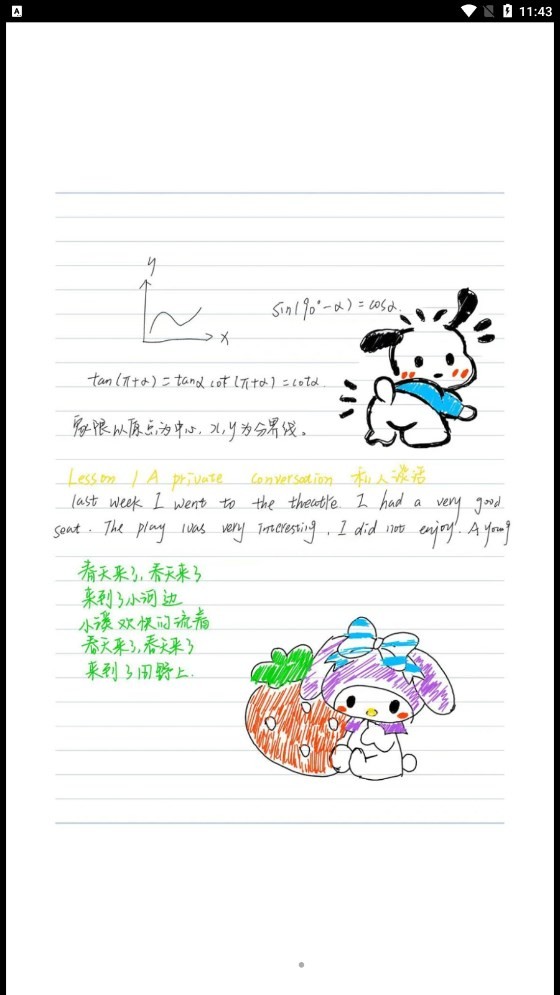 11:43
y
x
sin(90°-α)=cosα.
tan(π+α)=tanα cot(π+α)=cotα.
象限以原点为中心,x,y为分界线。
Lesson 1 A private conversation 私人谈话
last week I went to the theatre. I had a very good
seat. The play was very interesting, I did not enjoy. A young
春天来了,春天来了
来到了小河边
小溪欢快的流着
春天来了,春天来了
来到了田野上.